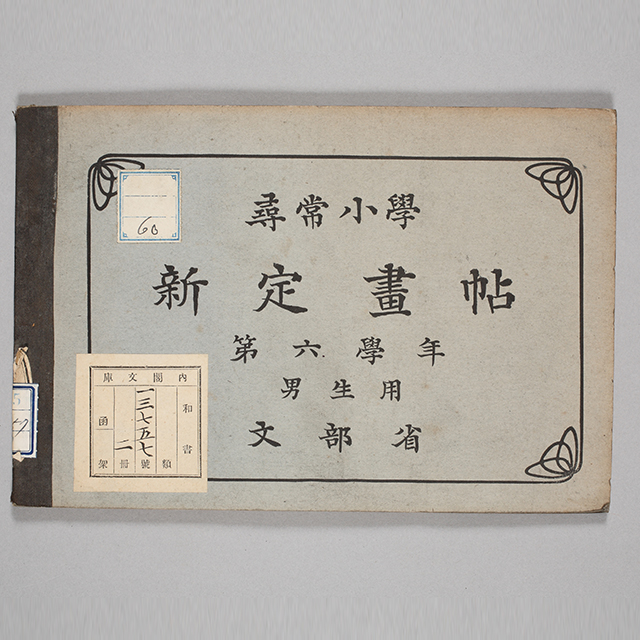 尋常小學
新定畫帖
第六學年
男生用
文部省
60
內閣文庫
和書
類
一三七五七
號
二
冊
函
架